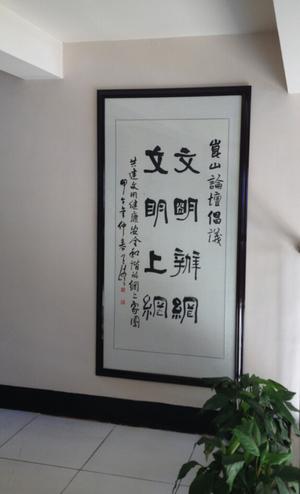 崑山論壇倡議
文明辦網
文明上網
共建文明健康安全和諧的網上家園
甲午年仲春